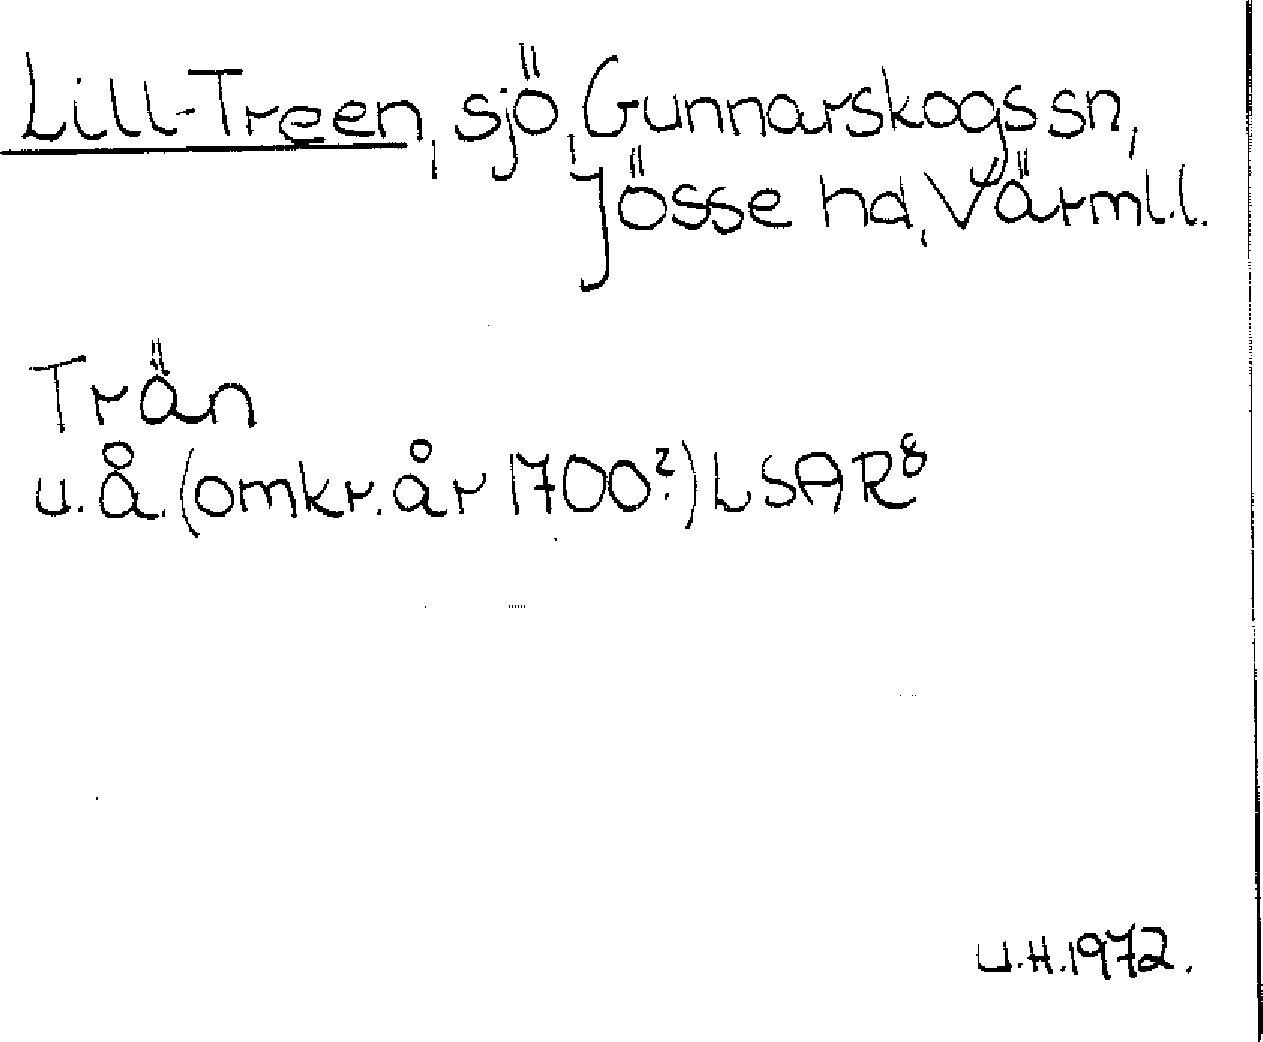 Lill-Treen, sjö, Gunnarskogs sn,
Jösse hd, Värml.l.
Trän
u.å. (omkr. år 1700?) LSAR8
U.H. 1972.